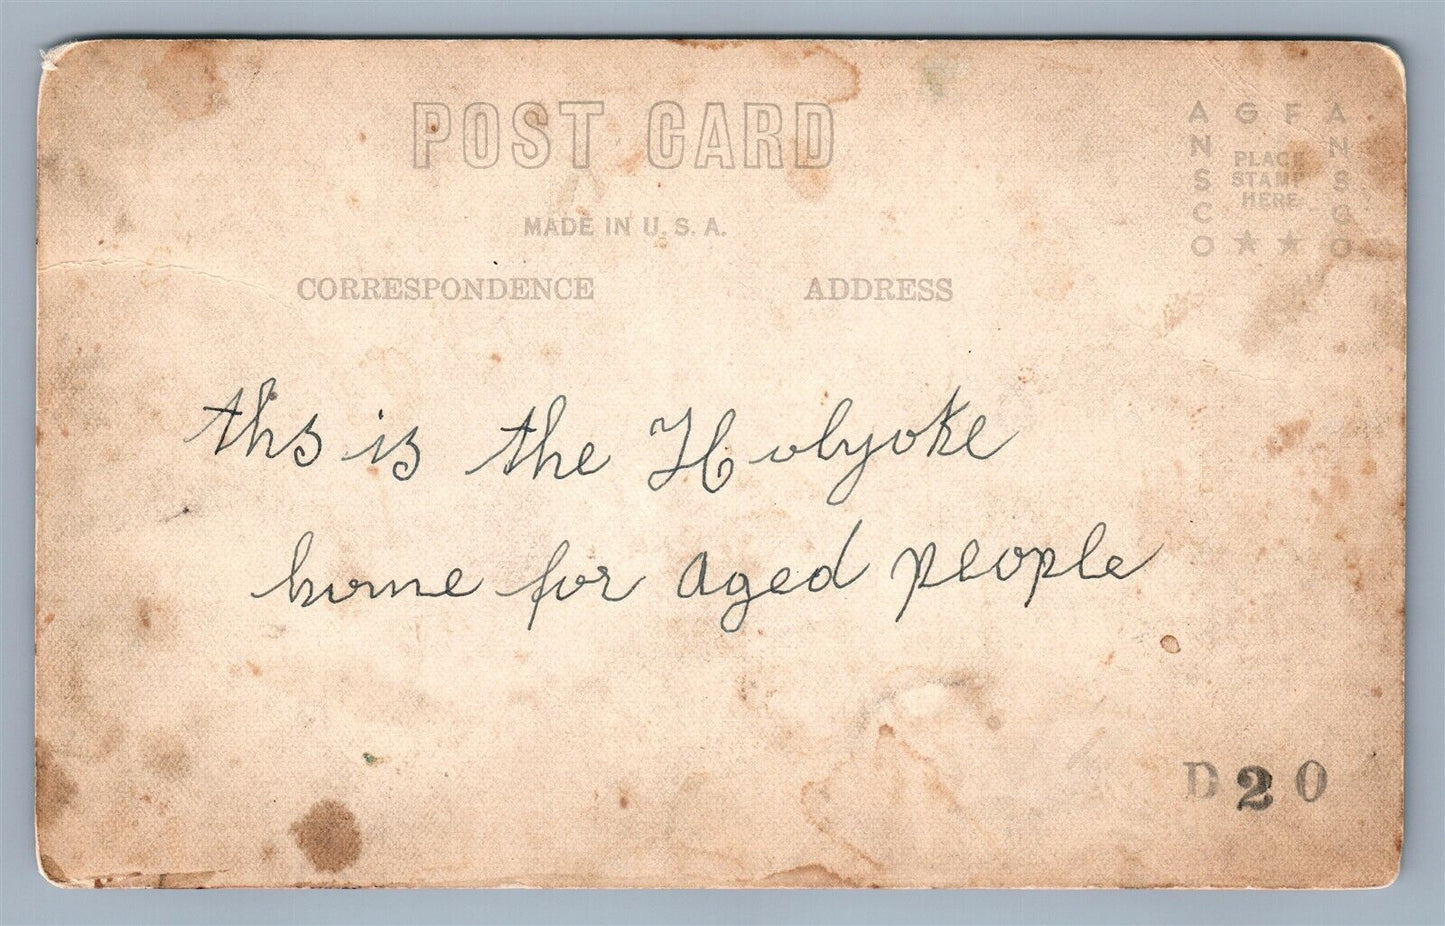 POST CARD
MADE IN U.S.A.
CORRESPONDENCE
ADDRESS
AGFA
ANSCO
ANSCO
PLACE
STAMP
HERE
ths is the Holyoke
home for aged people
D20